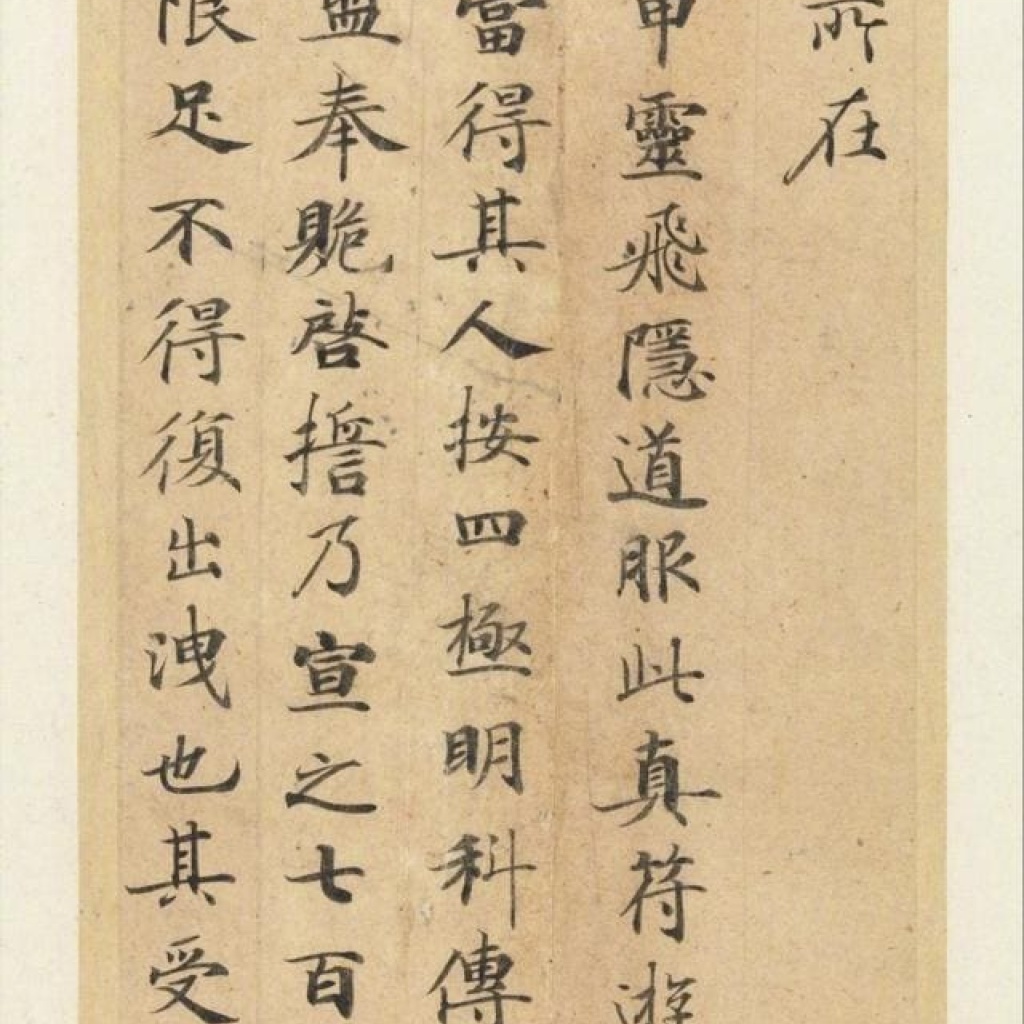 所在
甲靈飛隱道服此真符遊
當得其人按四極明科傳
盟奉賝啓誓乃宣之七百
限足不得復出洩也其受